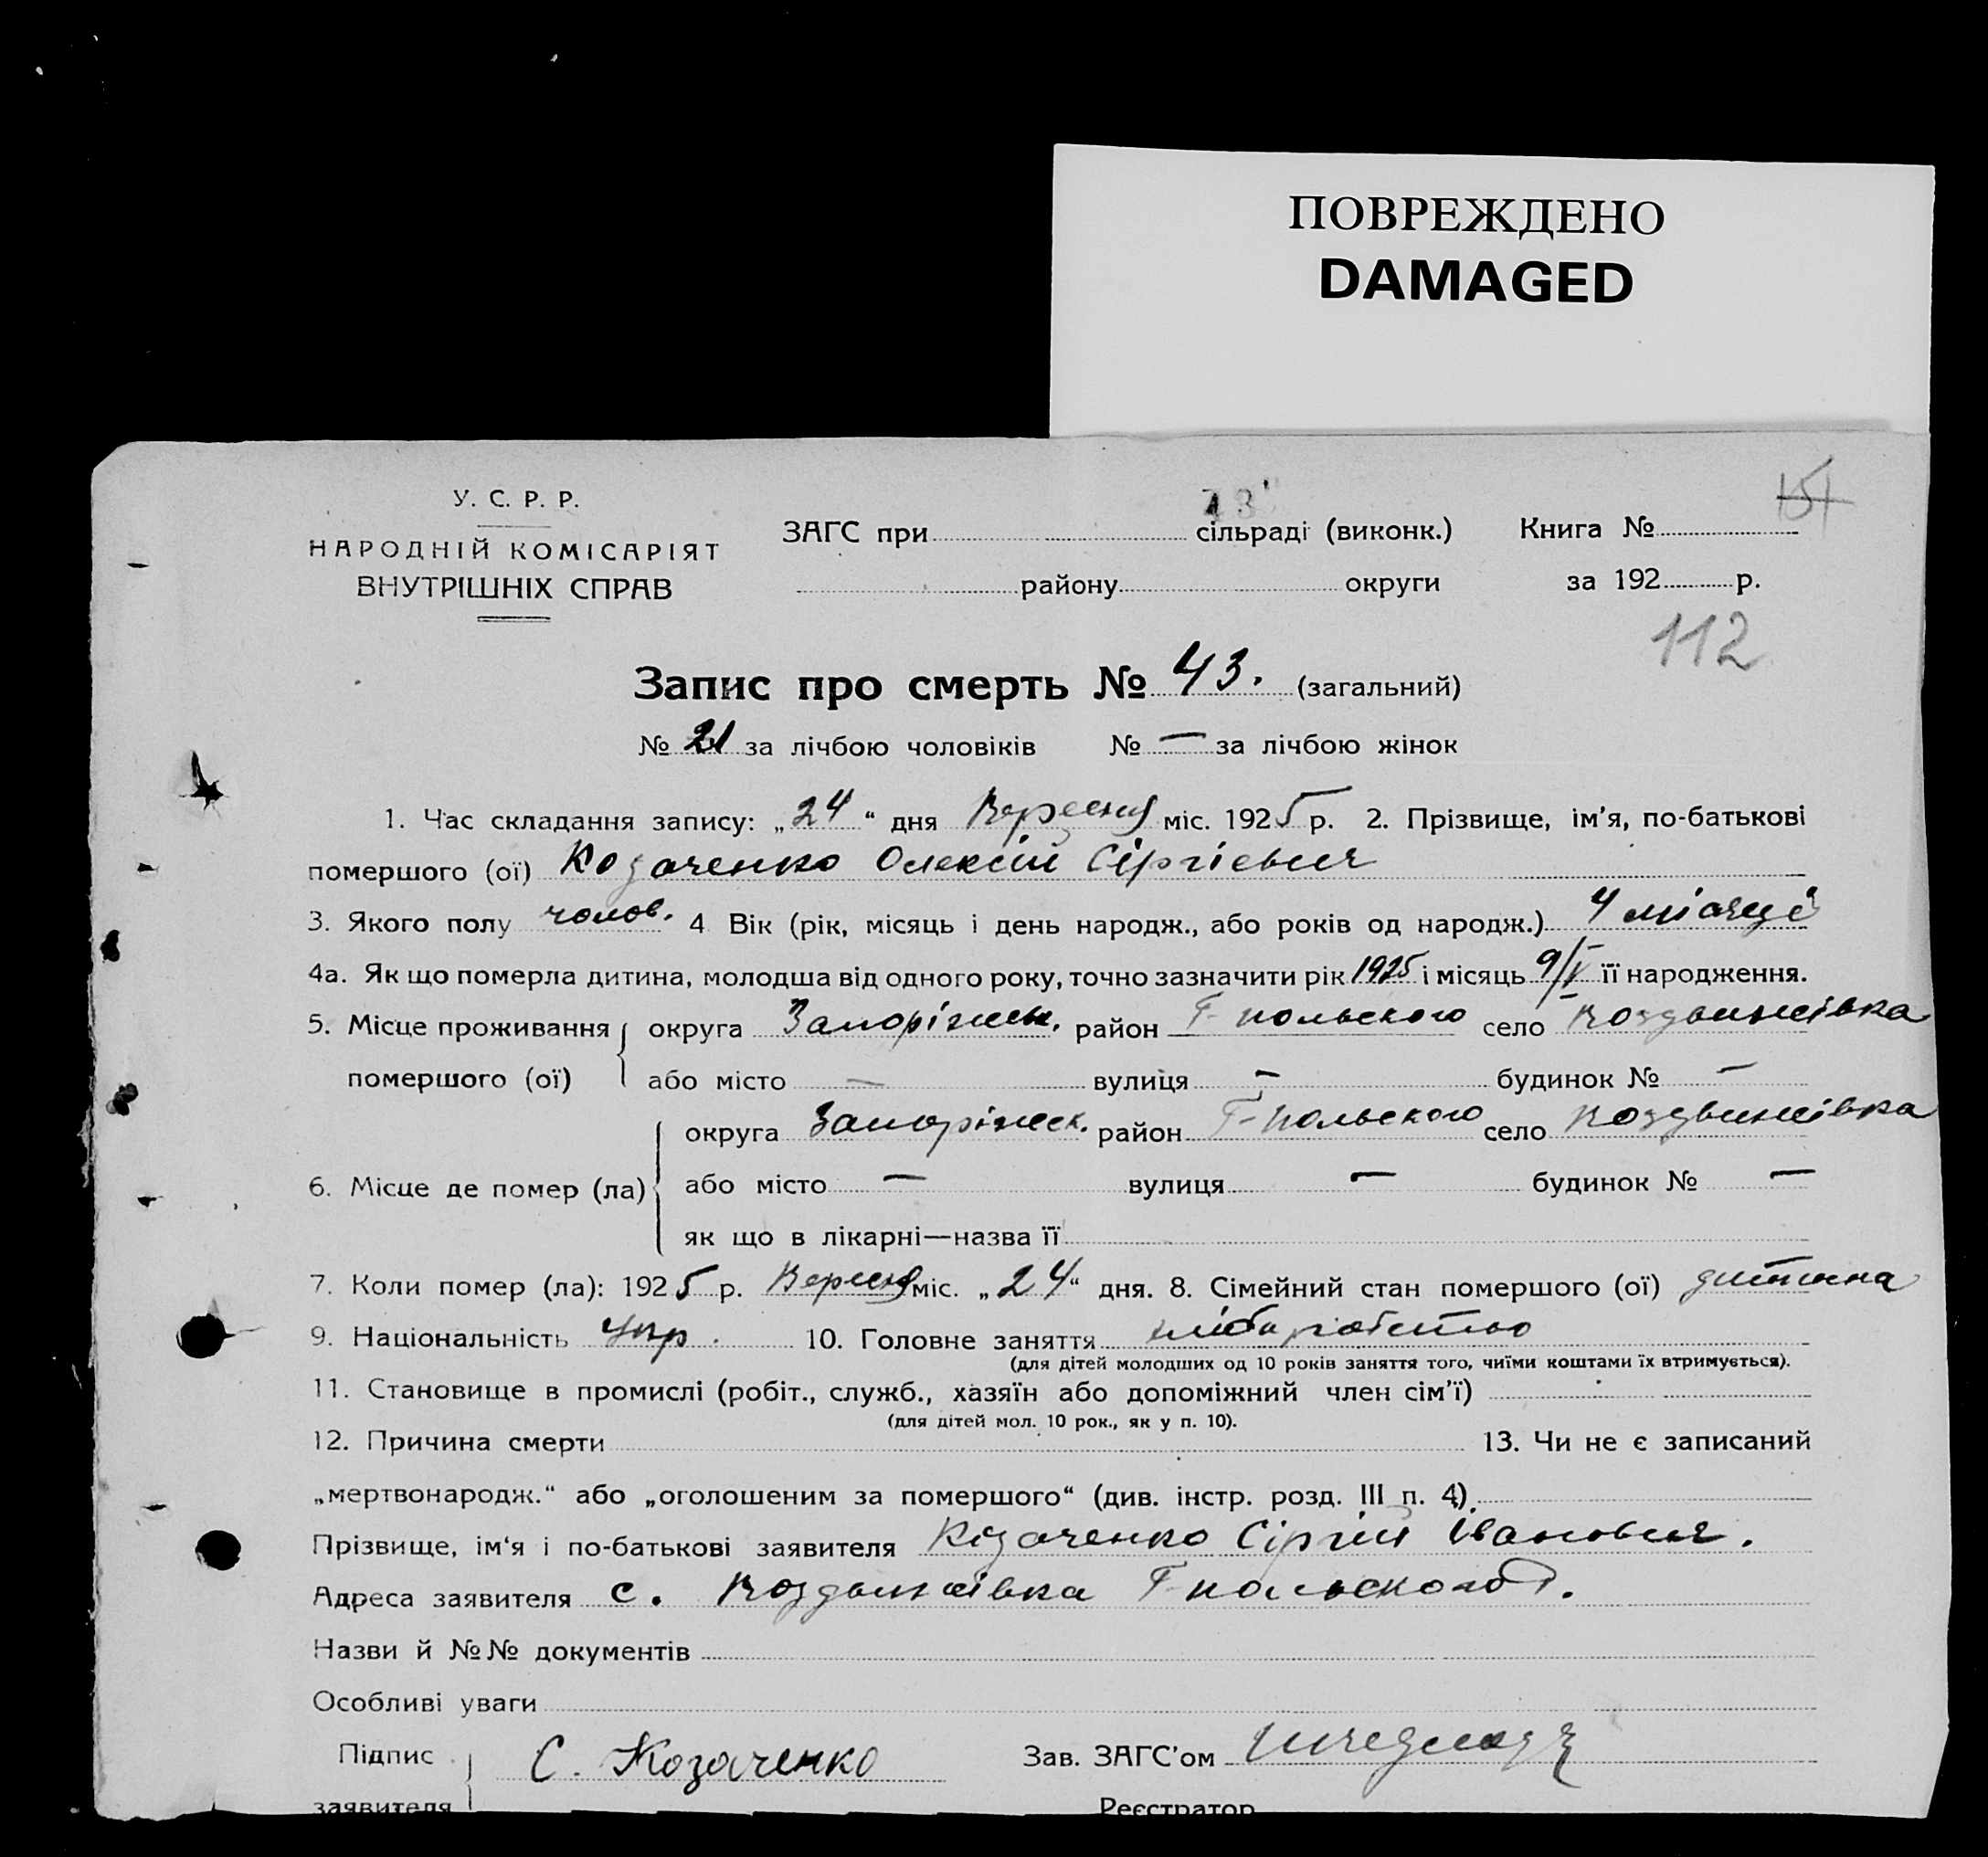 ПОВРЕЖДЕНО
DAMAGED
У. С. Р. Р.
НАРОДНІЙ КОМІСАРІЯТ
ВНУТРІШНІХ СПРАВ
ЗАГС при сільраді (виконк.) Книга №
району округи за 192 р.
112
Запис про смерть № 43. (загальний)
№ 21 за лічбою чоловіків № — за лічбою жінок
1. Час складання запису: „24“ дня Вересня міс. 1925 р. 2. Прізвище, ім'я, по-батькові
помершого (ої) Козаченко Олексій Сіргієвич
3. Якого полу чолов. 4 Вік (рік, місяць і день народж., або років од народж.) 4 місяці
4а. Як що померла дитина, молодша від одного року, точно зазначити рік 1925 і місяць 9/V її народження.
5. Місце проживання округа Запоріжськ. район Г-польского село Воздвижівка
помершого (ої) або місто — вулиця — будинок № —
округа Запоріжск. район Г-польского село Воздвижівка
6. Місце де помер (ла) або місто — вулиця — будинок № —
як що в лікарні—назва її
7. Коли помер (ла): 1925 р. Вересня міс. „24“ дня. 8. Сімейний стан помершого (ої) дитина
9. Національність Укр. 10. Головне заняття
(для дітей молодших од 10 років заняття того, чиїми коштами їх втримується).
11. Становище в промислі (робіт., служб., хазяїн або допоміжний член сім'ї)
(для дітей мол. 10 рок., як у п. 10).
12. Причина смерти 13. Чи не є записаний
„мертвонародж.“ або „оголошеним за помершого“ (див. інстр. розд. III п. 4).
Прізвище, ім'я і по-батькові заявителя Козаченко Сіргій Іванович.
Адреса заявителя с. Воздвижівка Г-польского
Назви й №№ документів
Особливі уваги
Підпис С. Козаченко Зав. ЗАГС'ом
заявителя Реєстратор